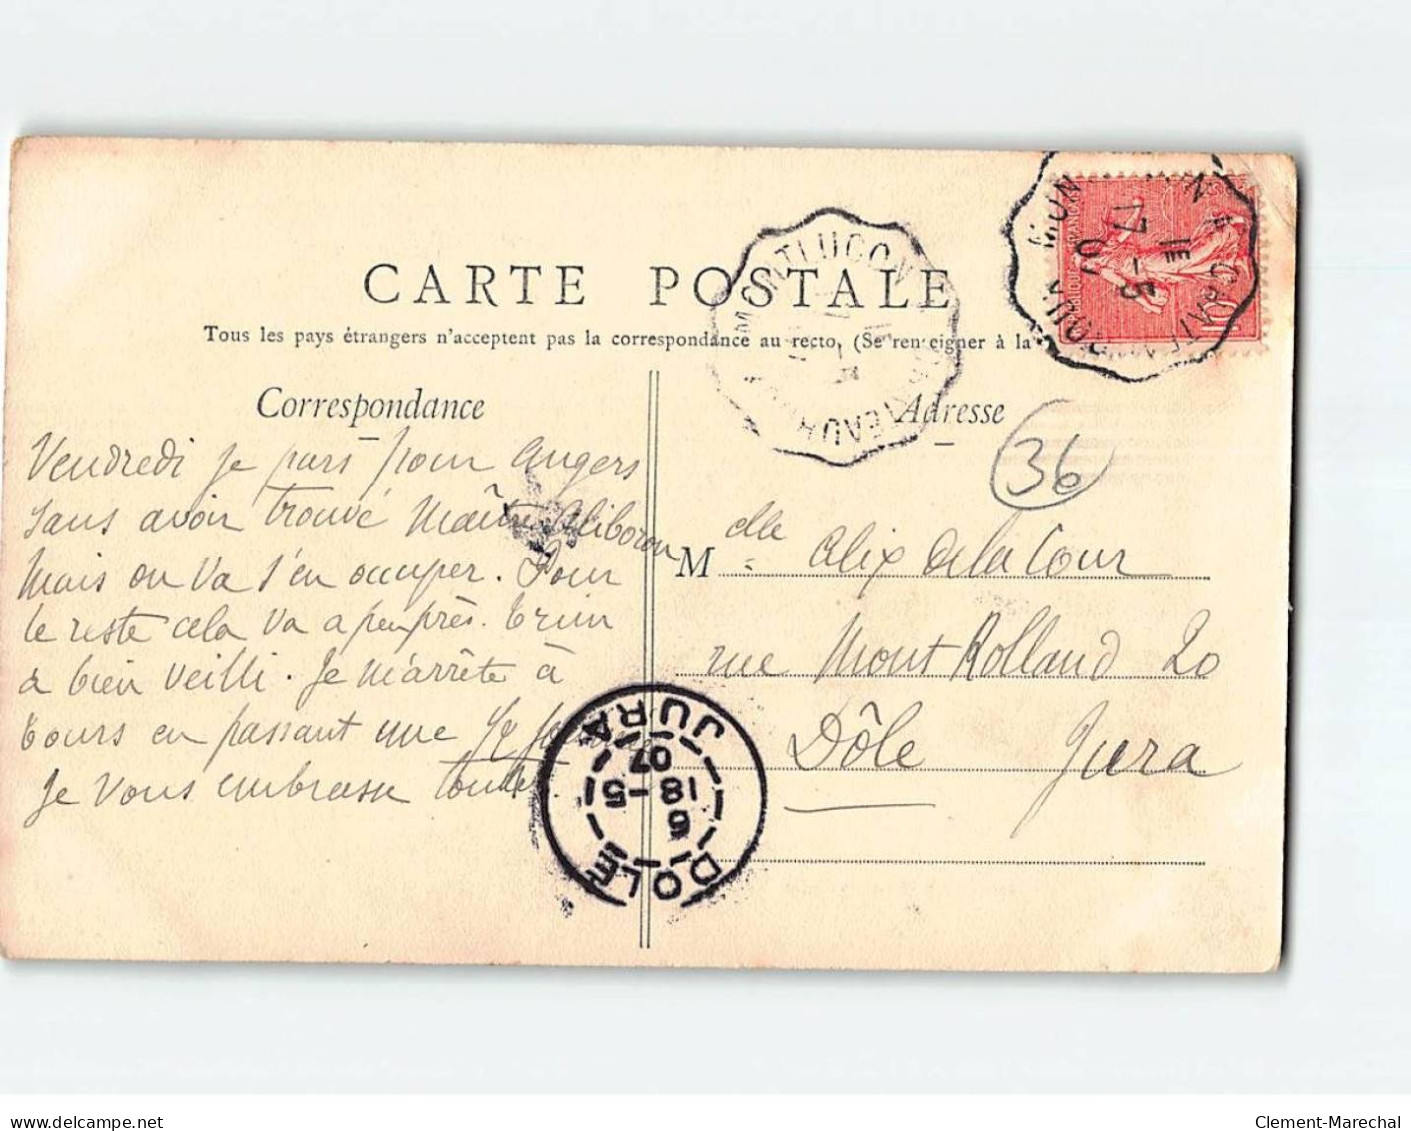 CARTE POSTALE
Tous les pays étrangers n'acceptent pas la correspondance au recto, (Se renseigner à la
Correspondance
Adresse
36
Vendredi je pars pour Angers
sans avoir trouvé Maître Aliboron
Mais on va s'en occuper. Pour
le reste cela va a peu près.
a bien veilli. Je m'arrête à
Tours en passant une
Je vous embrasse toutes
Melle Alix de la Cour
rue Mont Rolland 20
Dôle Jura
MONTLUÇON
CHATEAUROUX
17 - 5
07
DOLE
JURA
6
18 - 5
07
delcampe.net
Clement-Marechal